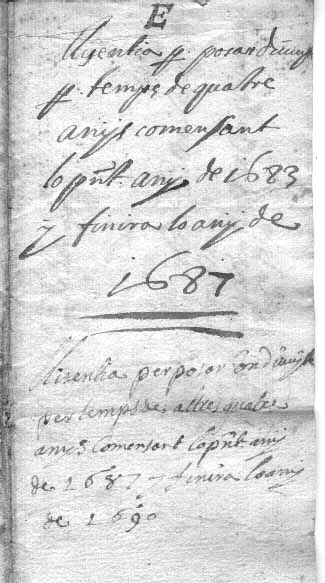 E
llisentia p. posar diumg
p. temps de quatre
anys comensant
lo pñt. any de 1683
y finira lo any de
1687
llisentia per posar
per temps de altres quatre
anys comensant lo pñt any
de 1687 y finira lo any
de 1690